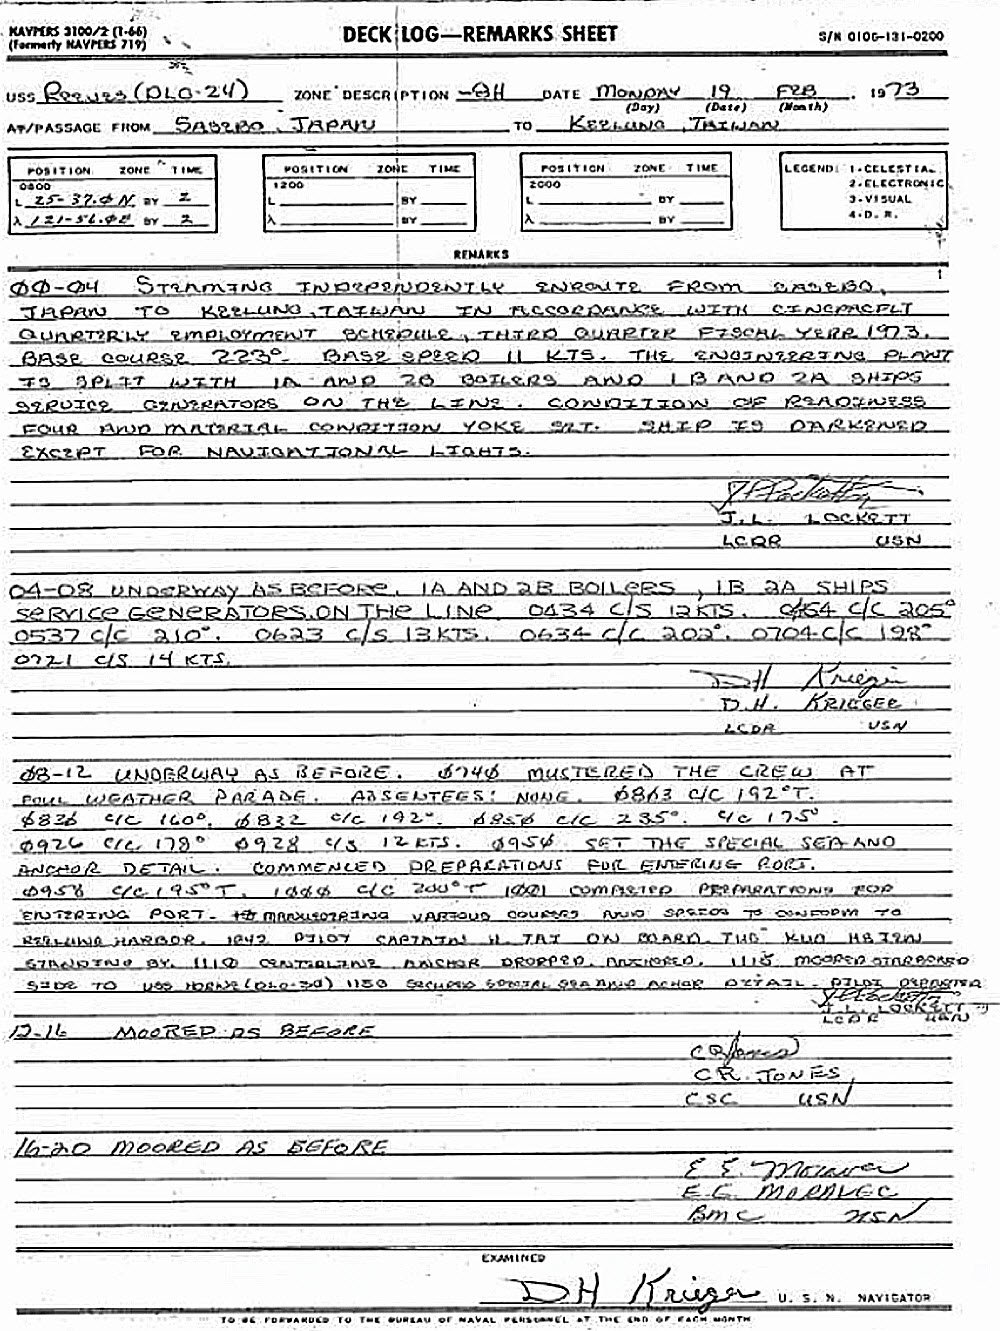 NAVPERS 3100/2 (1-66)
(Formerly NAVPERS 719)
DECK LOG—REMARKS SHEET
S/N 0106-131-0200
USS REEVES (DLG-24) ZONE DESCRIPTION -8H DATE MONDAY 19 FEB , 1973
(Day) (Date) (Month)
AT/PASSAGE FROM SASEBO, JAPAN TO KEELUNG, TAIWAN
POSITION ZONE TIME
0800
L 25-37.0N BY 2
λ 121-56.0E BY 2
POSITION ZONE TIME
1200
L BY
λ BY
POSITION ZONE TIME
2000
L BY
λ BY
LEGEND: 1-CELESTIAL
2-ELECTRONIC
3-VISUAL
4-D. R.
REMARKS
00-04 STEAMING INDEPENDENTLY ENROUTE FROM SASEBO,
JAPAN TO KEELUNG, TAIWAN IN ACCORDANCE WITH CINCPACFLT
QUARTERLY EMPLOYMENT SCHEDULE, THIRD QUARTER FISCAL YEAR 1973.
BASE COURSE 223°. BASE SPEED 11 KTS. THE ENGINEERING PLANT
IS SPLIT WITH 1A AND 2B BOILERS AND 1B AND 2A SHIPS
SERVICE GENERATORS ON THE LINE. CONDITION OF READINESS
FOUR AND MATERIAL CONDITION YOKE SET. SHIP IS DARKENED
EXCEPT FOR NAVIGATIONAL LIGHTS.
J.L. LOCKETT
LCDR USN
04-08 UNDERWAY AS BEFORE, 1A AND 2B BOILERS, 1B 2A SHIPS
SERVICE GENERATORS ON THE LINE 0434 C/S 12 KTS. 0454 C/C 205°
0537 C/C 210°. 0623 C/S 13 KTS. 0634 C/C 202°. 0704 C/C 198°
0721 C/S 14 KTS.
DH Krieger
D.H. KRIEGER
LCDR USN
08-12 UNDERWAY AS BEFORE. 0740 MUSTERED THE CREW AT
FOUL WEATHER PARADE. ABSENTEES: NONE. 0803 C/C 192°T.
0826 C/C 160°. 0832 C/C 192°. 0850 C/C 235°. C/C 175°.
0926 C/C 178° 0928 C/S 12 KTS. 0950 SET THE SPECIAL SEA AND
ANCHOR DETAIL. COMMENCED PREPARATIONS FOR ENTERING PORT.
0958 C/C 195°T. 1000 C/C 200°T 1001 COMPLETED PREPARATIONS FOR
ENTERING PORT. MANUEVERING VARIOUS COURSES AND SPEEDS TO CONFORM TO
KEELUNG HARBOR. 1042 PILOT CAPTAIN H. TAI ON BOARD. TUG KUO HSIEN
STANDING BY. 1110 CENTERLINE ANCHOR DROPPED. ANCHORED. 1115 MOORED STARBOARD
SIDE TO USS HORNE (DLG-30) 1150 SECURED SPECIAL SEA AND ACHOR DETAIL. PILOT DEPARTED
J.L. LOCKETT
LCDR USN
12-16 MOORED AS BEFORE
CR Jones
C.R. JONES
CSC USN
16-20 MOORED AS BEFORE
E. E. Moravec
E.E. MORAVEC
BMC USN
EXAMINED
DH Krieger U. S. N. NAVIGATOR
TO BE FORWARDED TO THE BUREAU OF NAVAL PERSONNEL AT THE END OF EACH MONTH